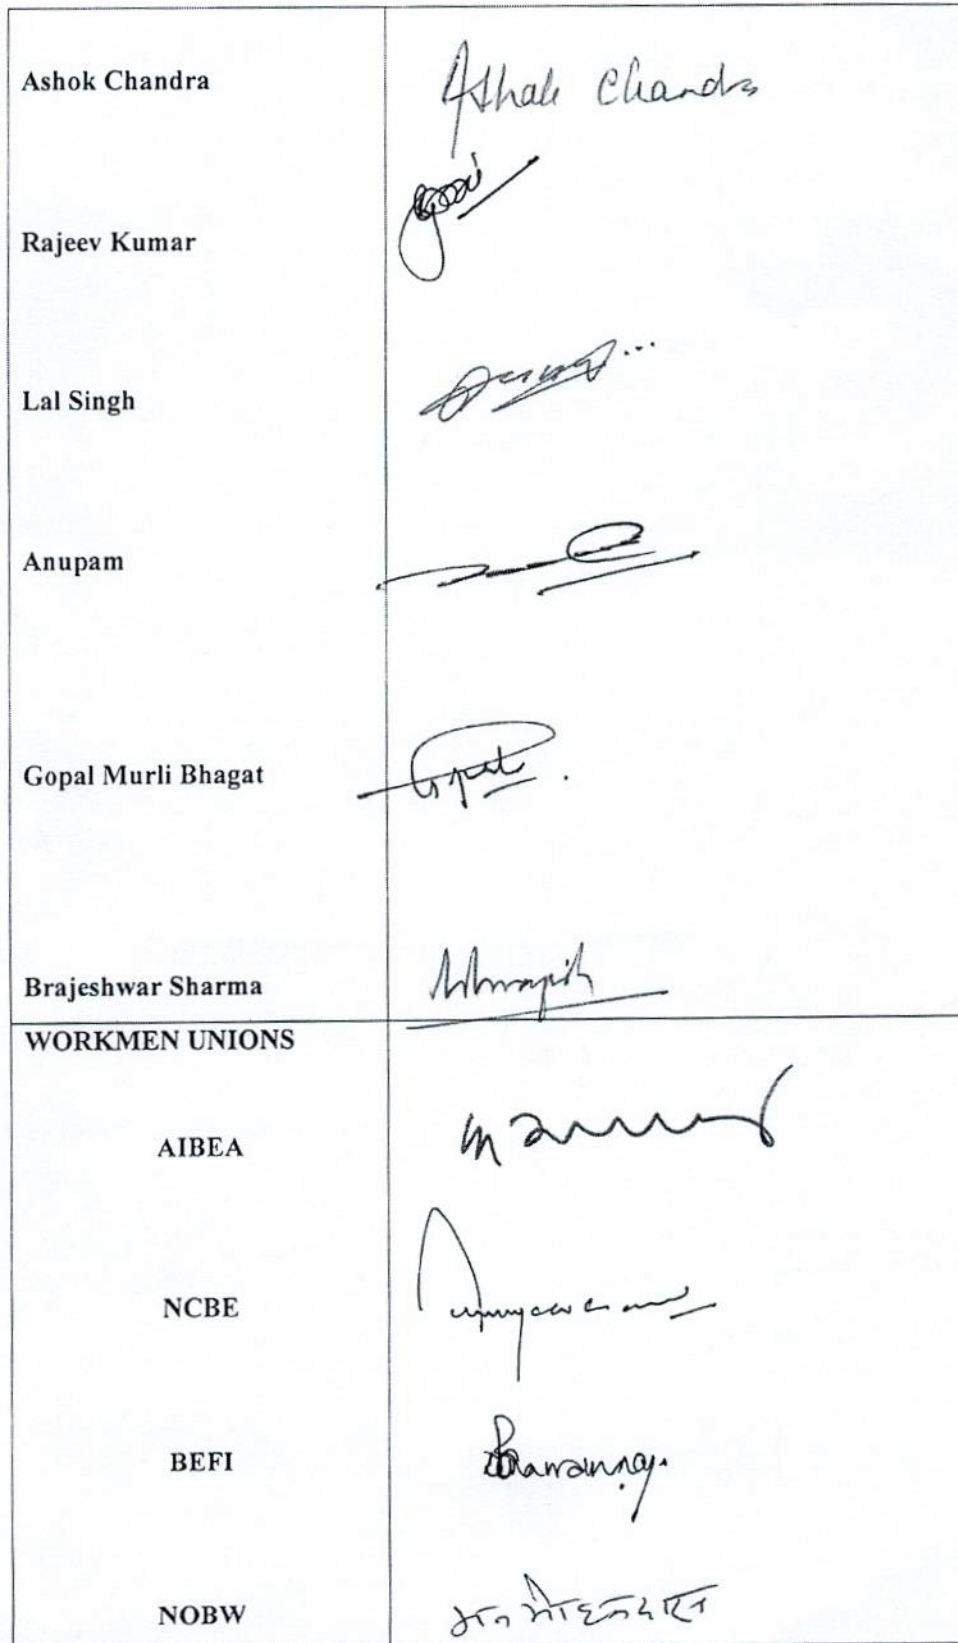 Ashok Chandra
Ashok Chandra
Rajeev Kumar
Lal Singh
Anupam
Gopal Murli Bhagat
Gopal
Brajeshwar Sharma
WORKMEN UNIONS
AIBEA
NCBE
BEFI
NOBW